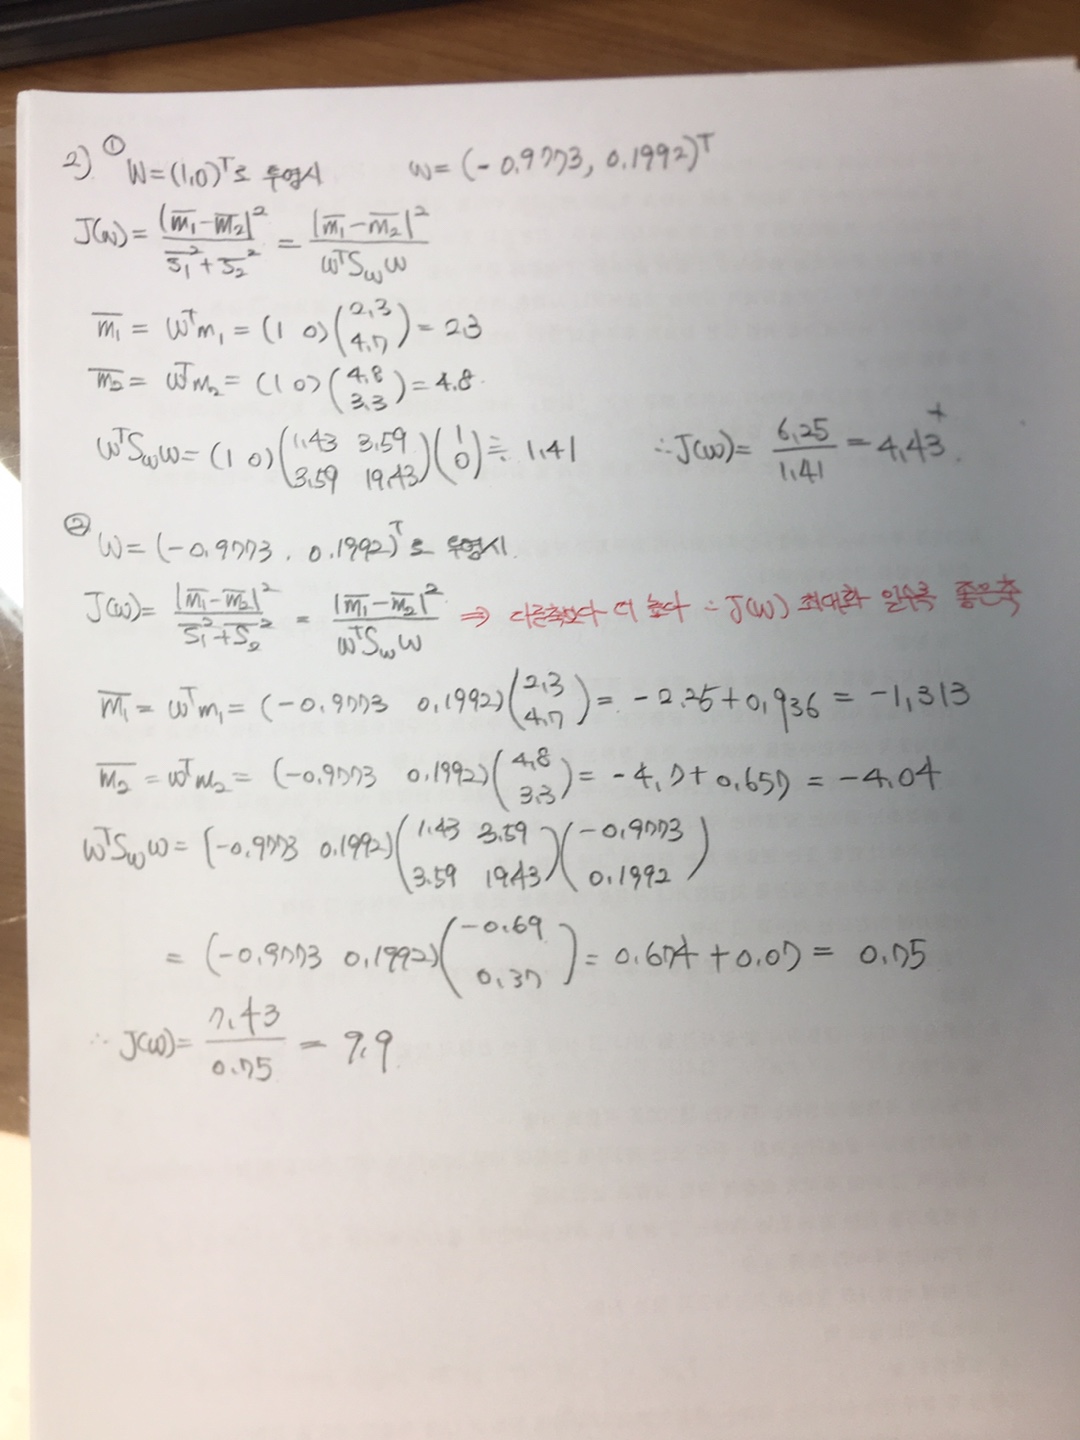 2) ① W=(1,0)ᵀ로 투영시 w=(-0.9773, 0.1992)ᵀ
J(w)= |m̅₁-m̅₂|² / s̅₁²+s̅₂² = |m̅₁-m̅₂|² / wᵀSww
m̅₁ = wᵀm₁ = (1 0)(2.3 4.7) = 2.3
m̅₂ = wᵀm₂ = (1 0)(4.8 3.3) = 4.8
wᵀSww = (1 0)(1.43 3.59 3.59 19.43)(1 0) ≒ 1.41 ∴J(w)= 6.25/1.41 = 4.43
② W=(-0.9773, 0.1992)ᵀ로 투영시.
J(w)= |m̅₁-m̅₂|² / s̅₁²+s̅₂² = |m̅₁-m̅₂|² / wᵀSww ⇒ 다른축보다 더 높다 ∴ J(w) 최대화 일수록 좋은축
m̅₁ = wᵀm₁ = (-0.9773 0.1992)(2.3 4.7) = -2.25+0.936 = -1.313
m̅₂ = wᵀm₂ = (-0.9773 0.1992)(4.8 3.3) = -4.7+0.657 = -4.04
wᵀSww = (-0.9773 0.1992)(1.43 3.59 3.59 19.43)(-0.9773 0.1992)
= (-0.9773 0.1992)(-0.69 0.37) = 0.674+0.07 = 0.75
∴ J(w)= 7.43/0.75 = 9.9